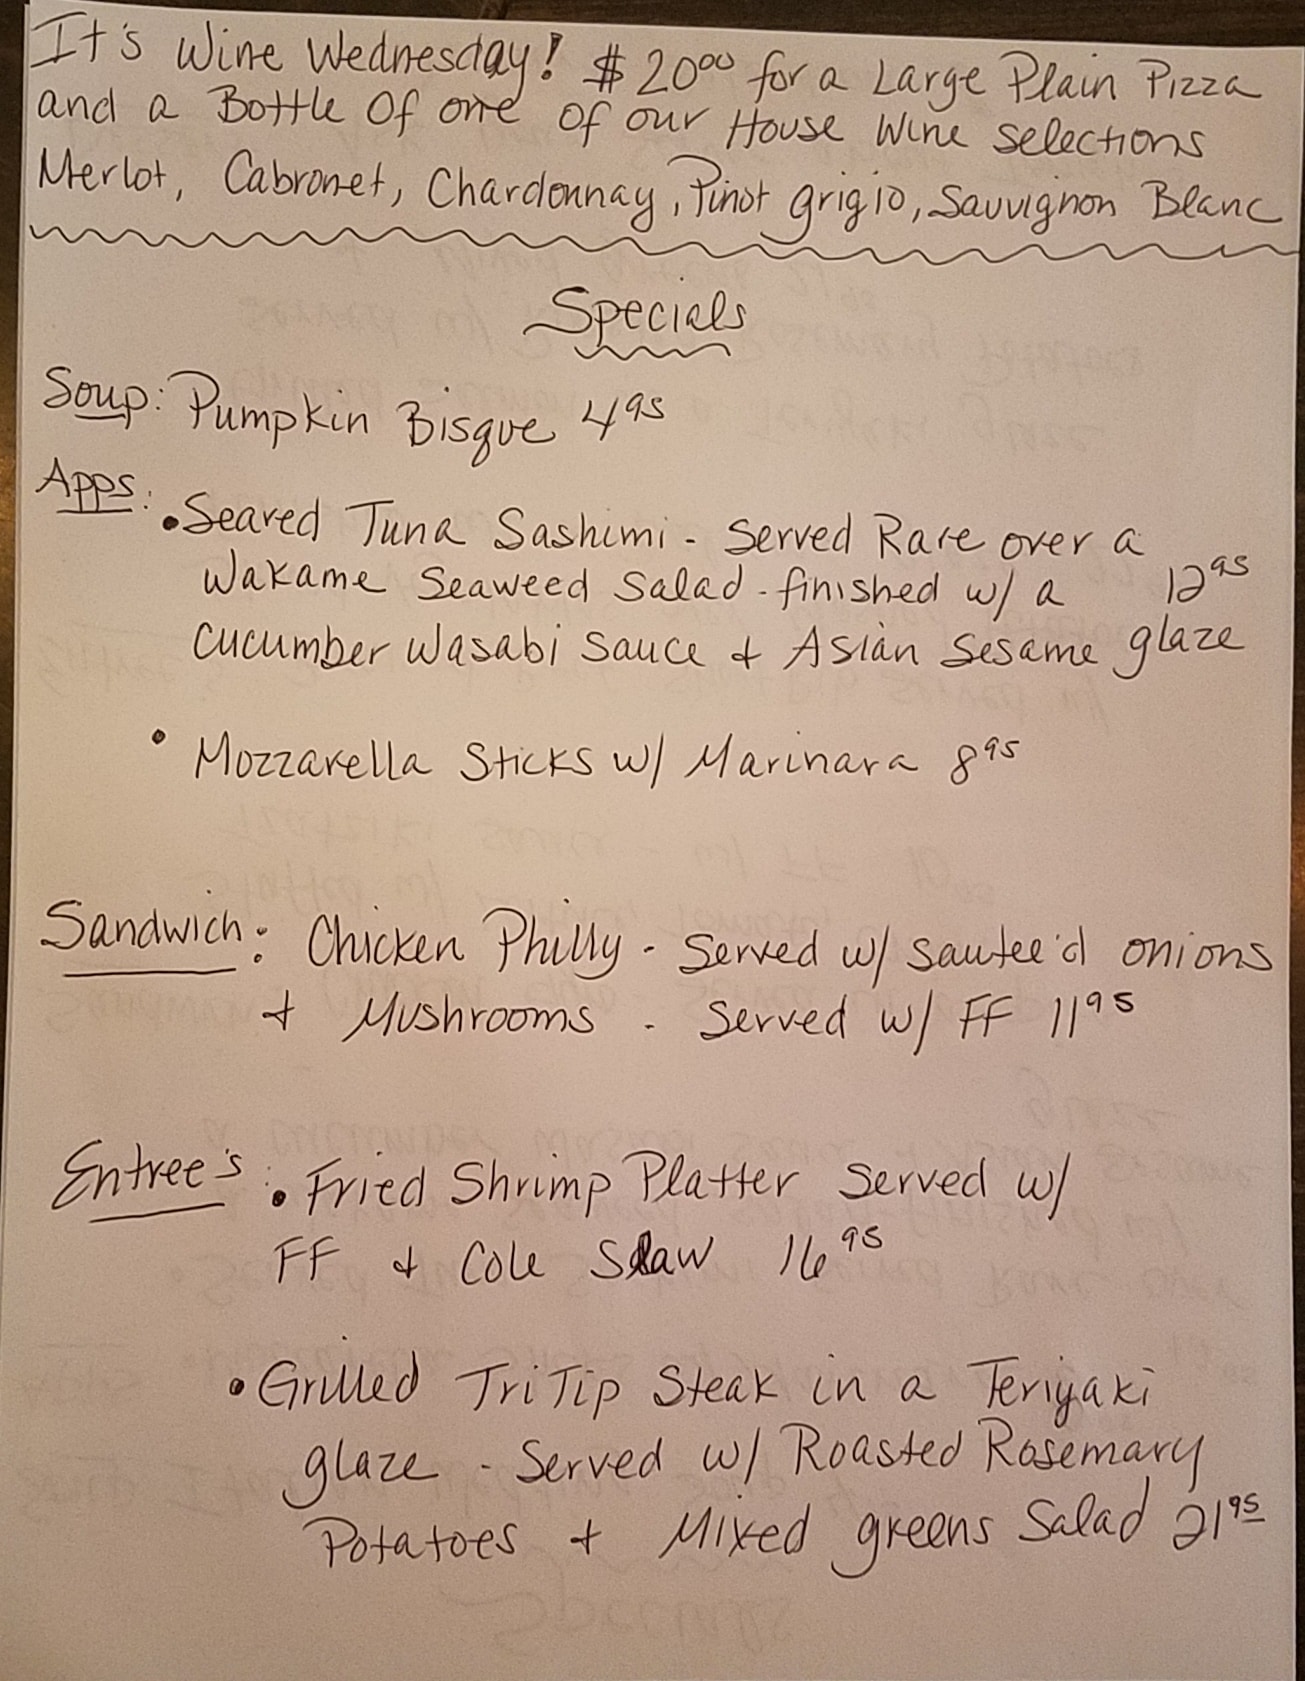 It's Wine Wednesday! $20.00 for a Large Plain Pizza
and a Bottle Of one of our House Wine Selections
Merlot, Cabronet, Chardonnay, Pinot grigio, Sauvignon Blanc
Specials
Soup: Pumpkin Bisque 4.95
Apps:
• Seared Tuna Sashimi - Served Rare over a
Wakame Seaweed Salad - finished w/ a 12.95
Cucumber Wasabi Sauce + Asian Sesame glaze
• Mozzarella Sticks w/ Marinara 8.95
Sandwich: Chicken Philly - Served w/ Sautee'd onions
+ Mushrooms - Served w/ FF 11.95
Entree's: • Fried Shrimp Platter Served w/
FF + Cole Slaw 16.95
• Grilled Tri Tip Steak in a Teriyaki
glaze - Served w/ Roasted Rosemary
Potatoes + Mixed greens Salad 21.95